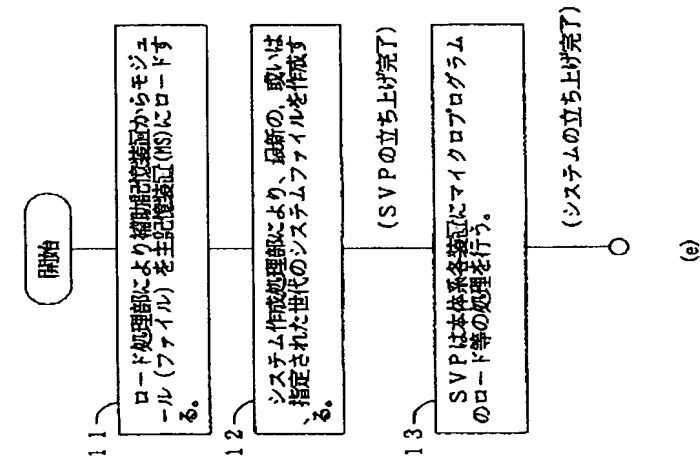 開始
11
ロード処理部により補助記憶装置からモジュ
ール(ファイル)を主記憶装置(MS)にロードす
る。
12
システム作成処理部により、最新の、或いは
、指定された世代のシステムファイルを作成す
る。
(SVPの立ち上げ完了)
13
SVPは本体系各装置にマイクロプログラム
のロード等の処理を行う。
(システムの立ち上げ完了)
(e)